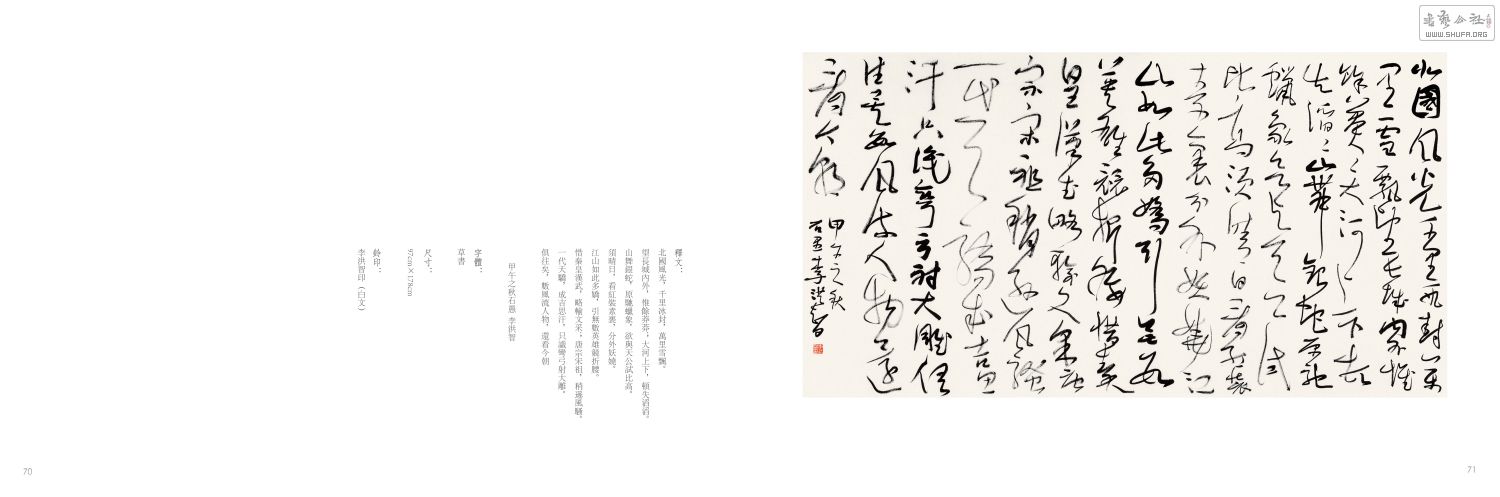 書藝公社
WWW.SHUFA.ORG
北國風光千里冰封萬
里雪飄望長城內外惟
餘莽〻大河上下頓
失滔〻山舞銀蛇原馳
蠟象欲與天公試
比高須晴日看紅裝
素裹分外妖嬈江
山如此多嬌引無數
英雄競折腰惜秦
皇漢武略輸文采唐
宗宋祖稍遜風騷
一代天驕成吉思
汗只識彎弓射大雕俱
往矣數風流人物還
看今朝
甲午之秋
石愚李洪智
釋文：
北國風光，千里冰封，萬里雪飄。
望長城內外，惟餘莽莽，大河上下，頓失滔滔。
山舞銀蛇，原馳蠟象，欲與天公試比高。
須晴日，看紅裝素裹，分外妖嬈。
江山如此多嬌，引無數英雄競折腰。
惜秦皇漢武，略輸文采，唐宗宋祖，稍遜風騷。
一代天驕，成吉思汗，只識彎弓射大雕。
俱往矣，數風流人物，還看今朝
甲午之秋石愚 李洪智
字體：
草書
尺寸：
97cm×178cm
鈐印：
李洪智印（白文）
70
71